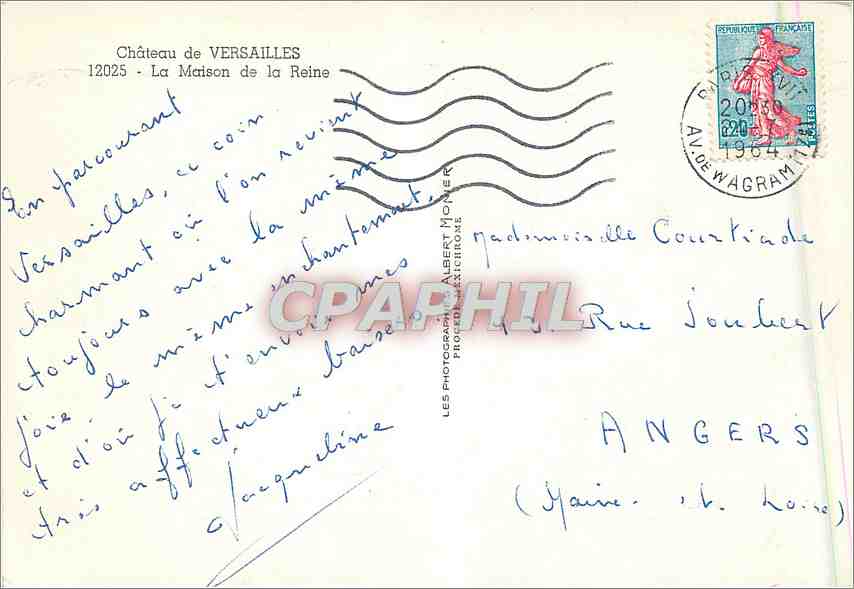 Château de VERSAILLES
12025 - La Maison de la Reine
En parcourant
Versailles, ce coin
charmant où l'on revient
toujours avec la même
joie le même enchantement,
et d'où je t'envoie mes
très affectueux baisers
Jacqueline
LES PHOTOGRAPHIES ALBERT MONIER
PROCÉDÉ MEXICHROME
REPUBLIQUE FRANÇAISE
POSTES
PARIS XVII
20H30
1964
AV. DE WAGRAM (17e)
Mademoiselle Courtiade
43. Rue Joubert
ANGERS
(Maine. et. Loire)
CPAPHIL